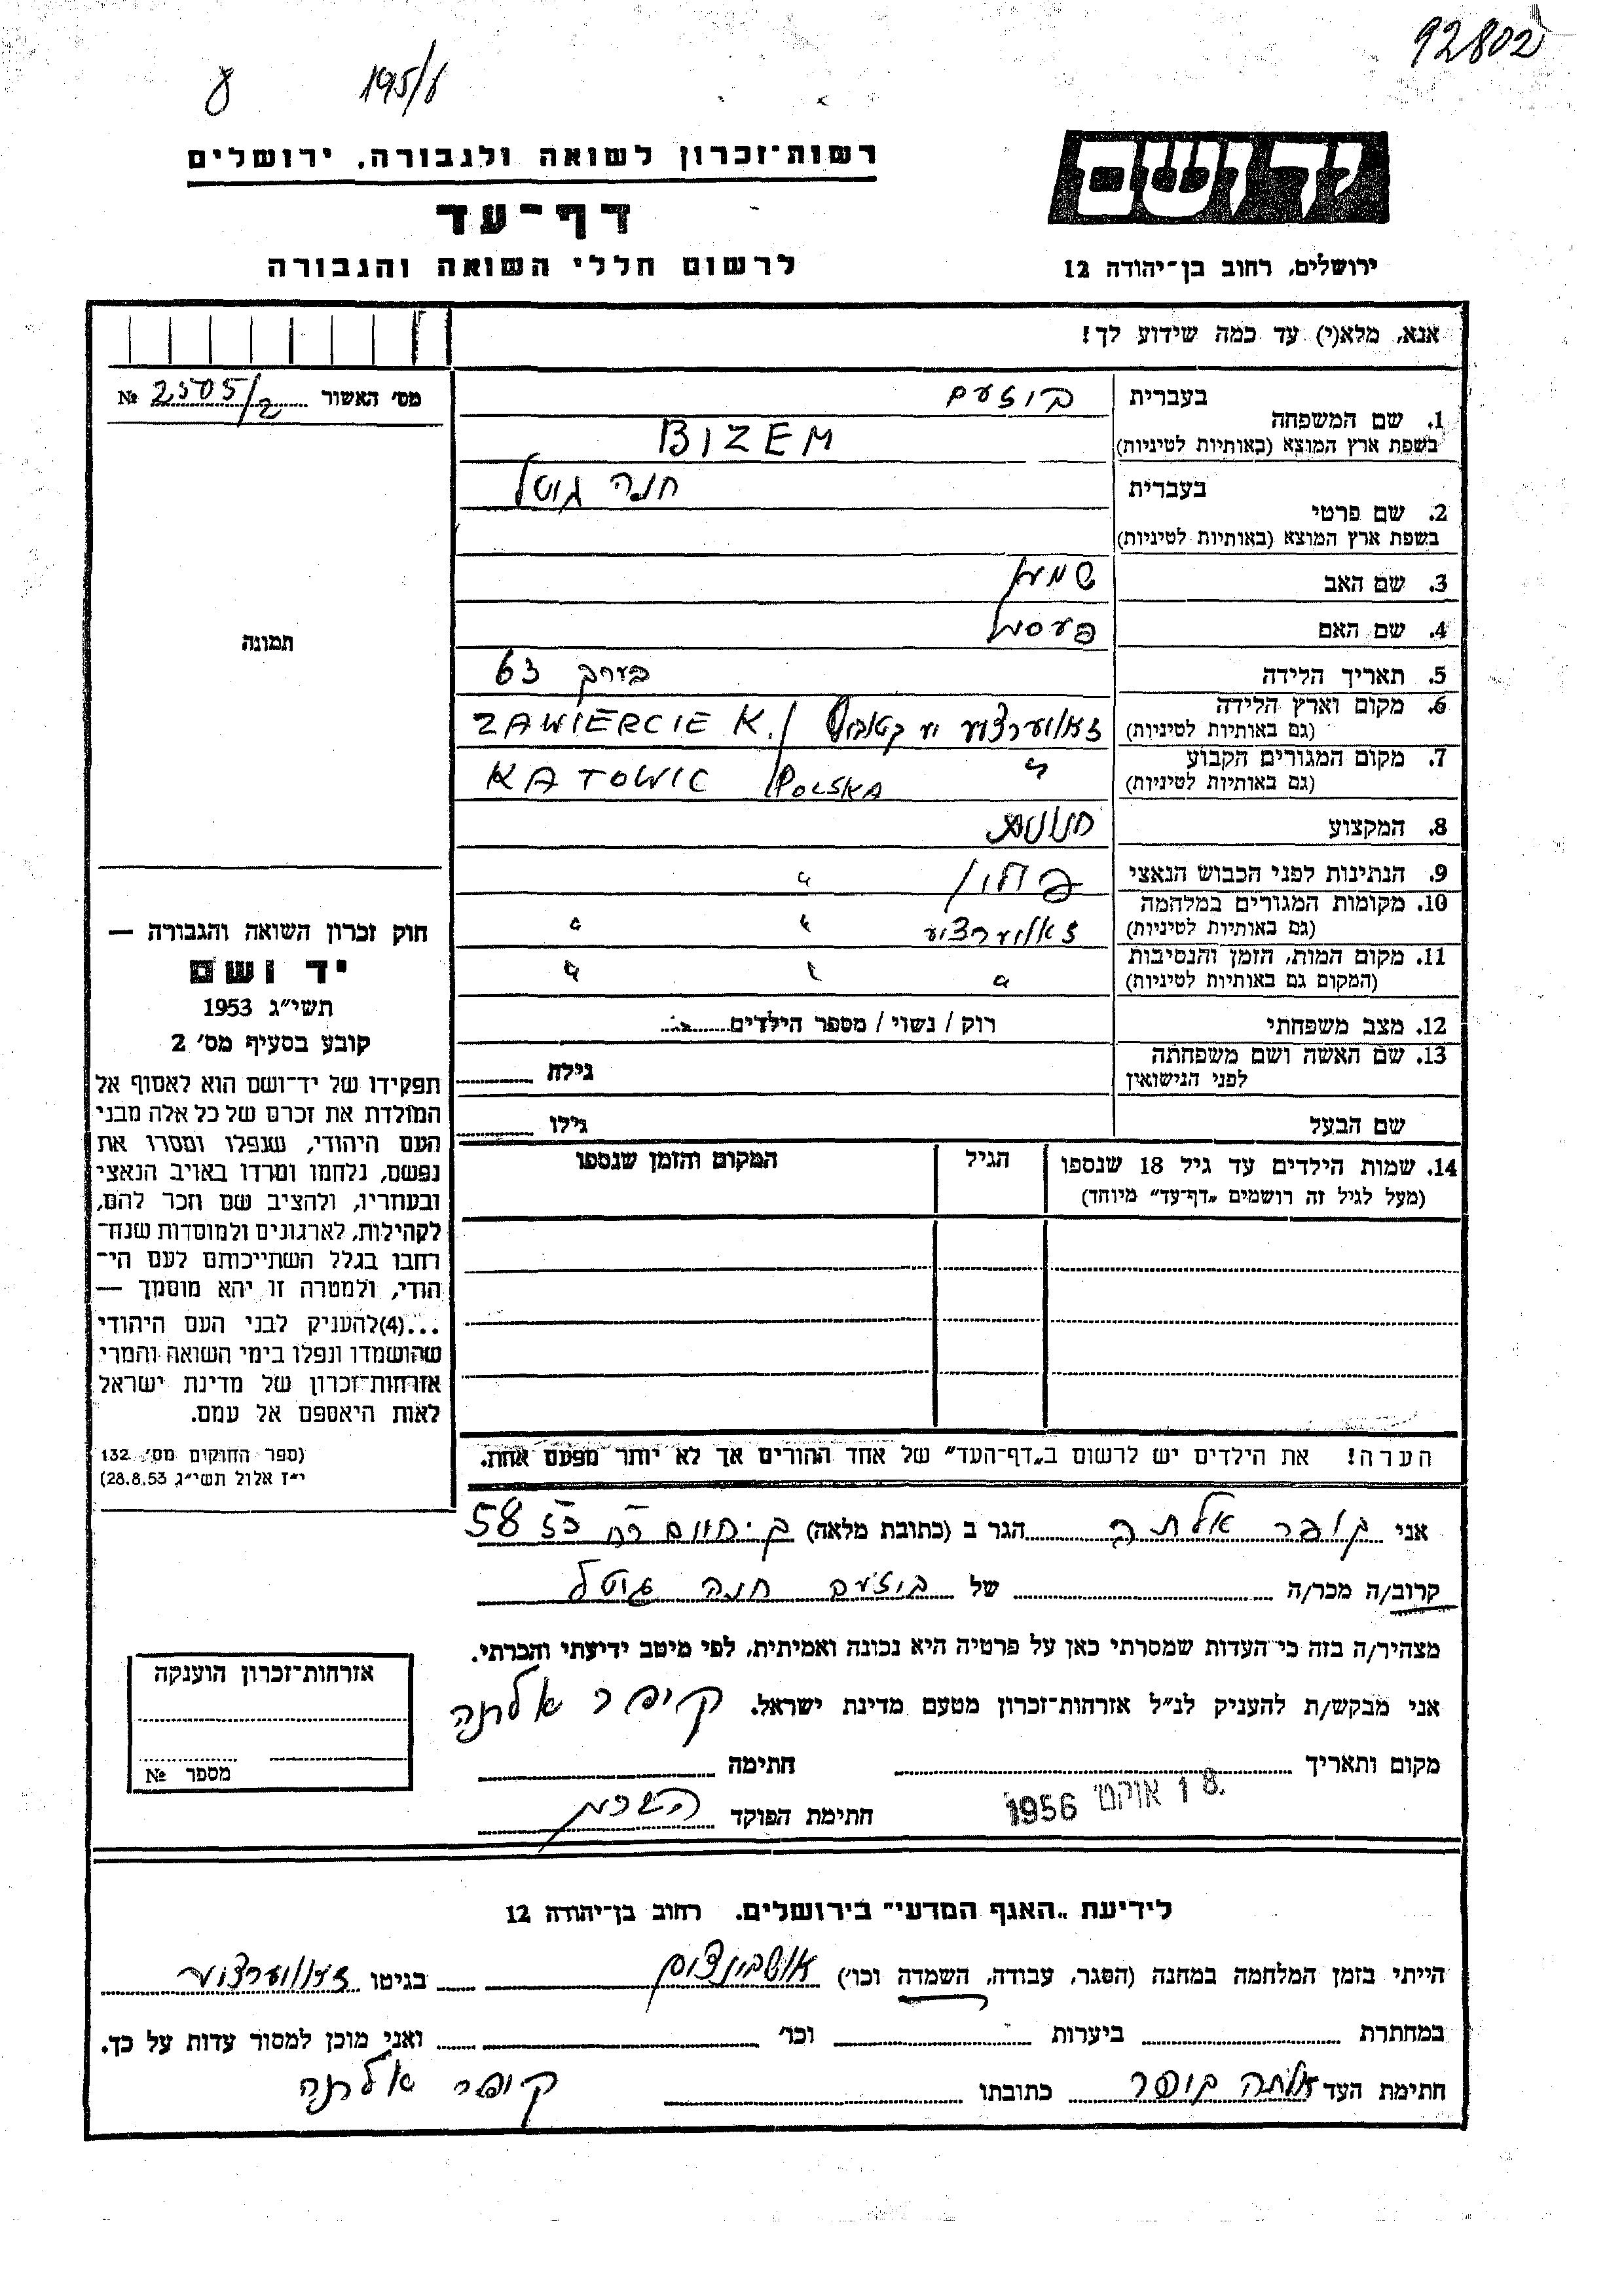 92802
195/8 8
ידושם
רשות־זכרון לשואה ולגבורה, ירושלים
דף־עד
ירושלים, רחוב בן־יהודה 12
לרשום חללי השואה והגבורה
אנא, מלא(י) עד כמה שידוע לך!
מס׳ האשור 2505/2 №
תמונה
1. שם המשפחה
בעברית ביזעם
בשפת ארץ המוצא (באותיות לטיניות) BIZEM
2. שם פרטי
בעברית חנה גוטל
בשפת ארץ המוצא (באותיות לטיניות)
3. שם האב שמעון
4. שם האם פעסל
5. תאריך הלידה בערך 63
6. מקום וארץ הלידה
(גם באותיות לטיניות) זאוויערצע ZAWIERCIE K./
7. מקום המגורים הקבוע
(גם באותיות לטיניות) " KATOWIC POLSKA
8. המקצוע
9. הנתינות לפני הכבוש הנאצי פולין "
10. מקומות המגורים במלחמה
(גם באותיות לטיניות) זאוויערצע " "
11. מקום המות, הזמן והנסיבות
(המקום גם באותיות לטיניות) " " "
12. מצב משפחתי רוק / נשוי / מספר הילדים
13. שם האשה ושם משפחתה
לפני הנישואין גילה
שם הבעל גילו
14. שמות הילדים עד גיל 18 שנספו הגיל המקום והזמן שנספו
(מעל לגיל זה רושמים „דף־עד” מיוחד)
הערה! את הילדים יש לרשום ב„דף־העד” של אחד ההורים אך לא יותר מפעם אחת.
חוק זכרון השואה והגבורה —
יד ושם
תשי״ג 1953
קובע בסעיף מס׳ 2
תפקידו של יד־ושם הוא לאסוף אל
המולדת את זכרם של כל אלה מבני
העם היהודי, שנפלו ומסרו את
נפשם, נלחמו ומרדו באויב הנאצי
ובעוזריו, ולהציב שם וזכר להם,
לקהילות, לארגונים ולמוסדות שנח־
רבו בגלל השתייכותם לעם הי־
הודי, ולמטרה זו יהא מוסמך —
...(4)להעניק לבני העם היהודי
שהושמדו ונפלו בימי השואה והמרי
אזרחות־זכרון של מדינת ישראל
לאות היאספם אל עמם.
(ספר החוקים מס׳ 132
י״ז אלול תשי״ג 28.8.53)
אני קופר אלתה הגר ב (כתובת מלאה) ק. חיים 58
קרוב/ה מכר/ה של ביזעם חנה גוטל
מצהיר/ה בזה כי העדות שמסרתי כאן על פרטיה היא נכונה ואמיתית, לפי מיטב ידיעתי והכרתי.
אני מבקש/ת להעניק לנ״ל אזרחות־זכרון מטעם מדינת ישראל. קופר אלתה
מקום ותאריך חתימה
18 אוקט׳ 1956
חתימת הפוקד
אזרחות־זכרון הוענקה
מספר №
לידיעת „האגף המדעי” בירושלים. רחוב בן־יהודה 12
הייתי בזמן המלחמה במחנה (הסגר, עבודה, השמדה וכו׳) אושבינצים בגיטו זאוויערצע
במחתרת ביערות וכו׳ ואני מוכן למסור עדות על כך.
חתימת העד אלתה קופר כתובתו קופר אלתה